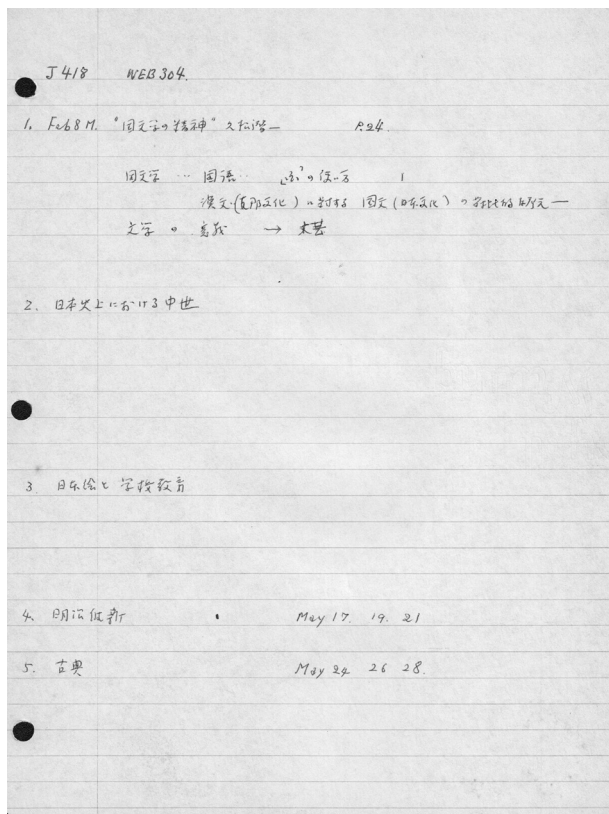 J 418 WEB 304.
1. Feb 8 M. "国文学の精神" 久松潜一 P.24.
国文学 … 国語 … の使い方
漢文 (支那文化) に対する 国文 (日本文化) の
文学の意義 →
2. 日本史上における中世
3. 日本絵と学校教育
4. 明治維新 May 17. 19. 21
5. 古典 May 24 26 28.